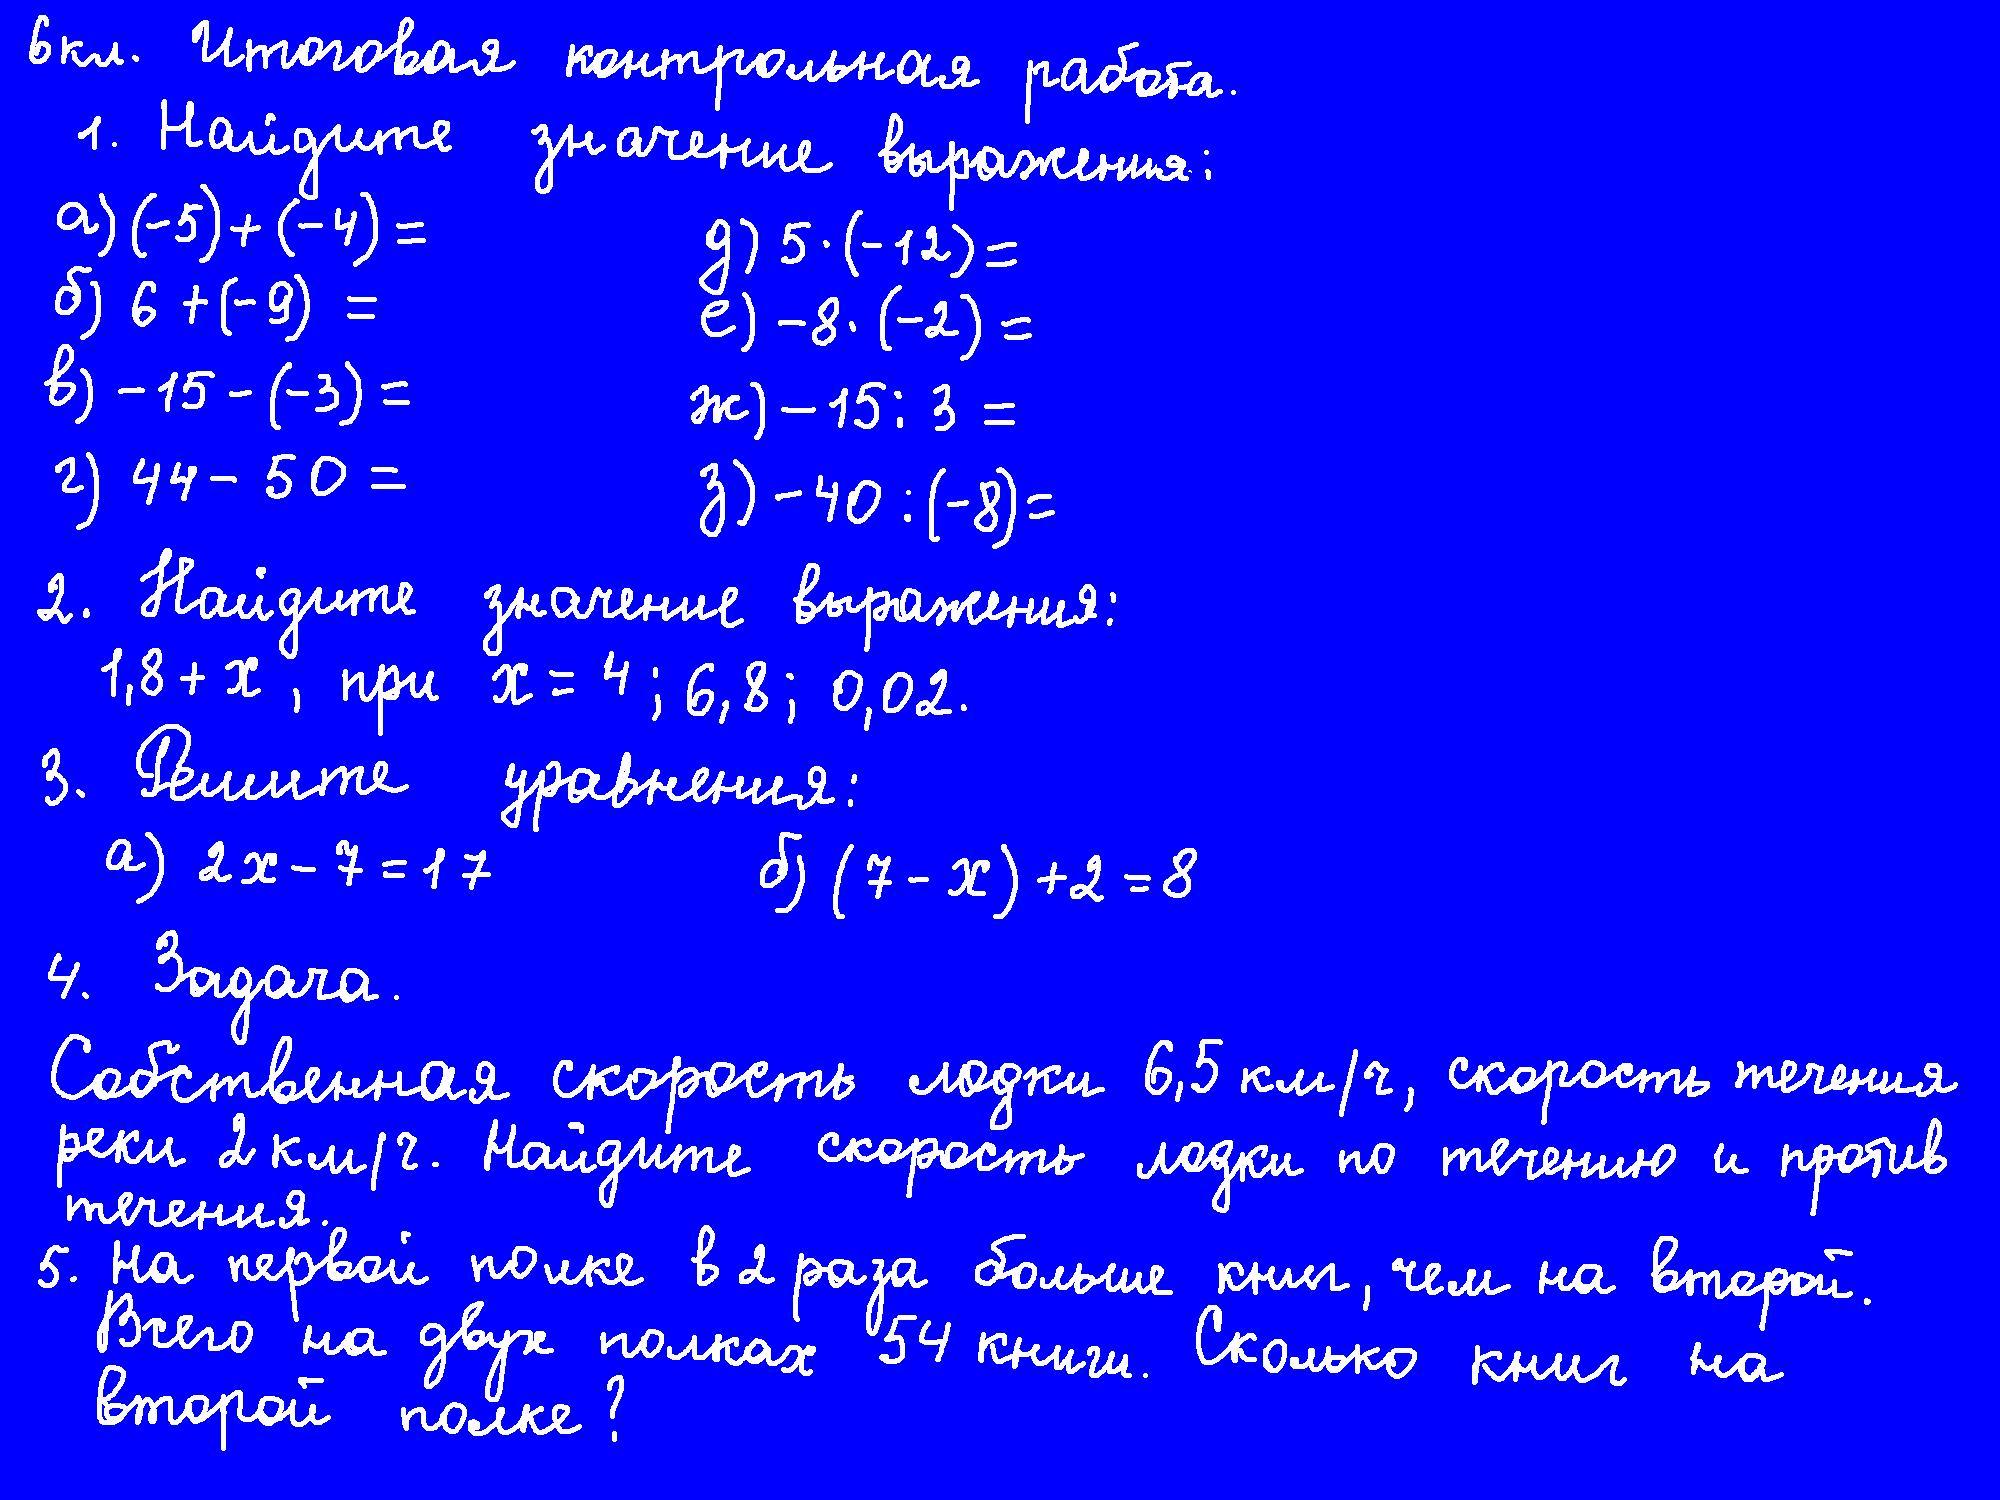 6кл. Итоговая контрольная работа.
1. Найдите значение выражения:
а) (-5)+(-4)= д) 5·(-12)=
б) 6+(-9) = е) -8·(-2)=
в) -15-(-3)= ж) -15:3=
г) 44-50= з) -40:(-8)=
2. Найдите значение выражения:
1,8+x, при x=4; 6,8; 0,02.
3. Решите уравнения:
а) 2x-7=17 б) (7-x)+2=8
4. Задача.
Собственная скорость лодки 6,5 км/ч, скорость течения
реки 2 км/ч. Найдите скорость лодки по течению и против
течения.
5. На первой полке в 2 раза больше книг, чем на второй.
Всего на двух полках 54 книги. Сколько книг на
второй полке?